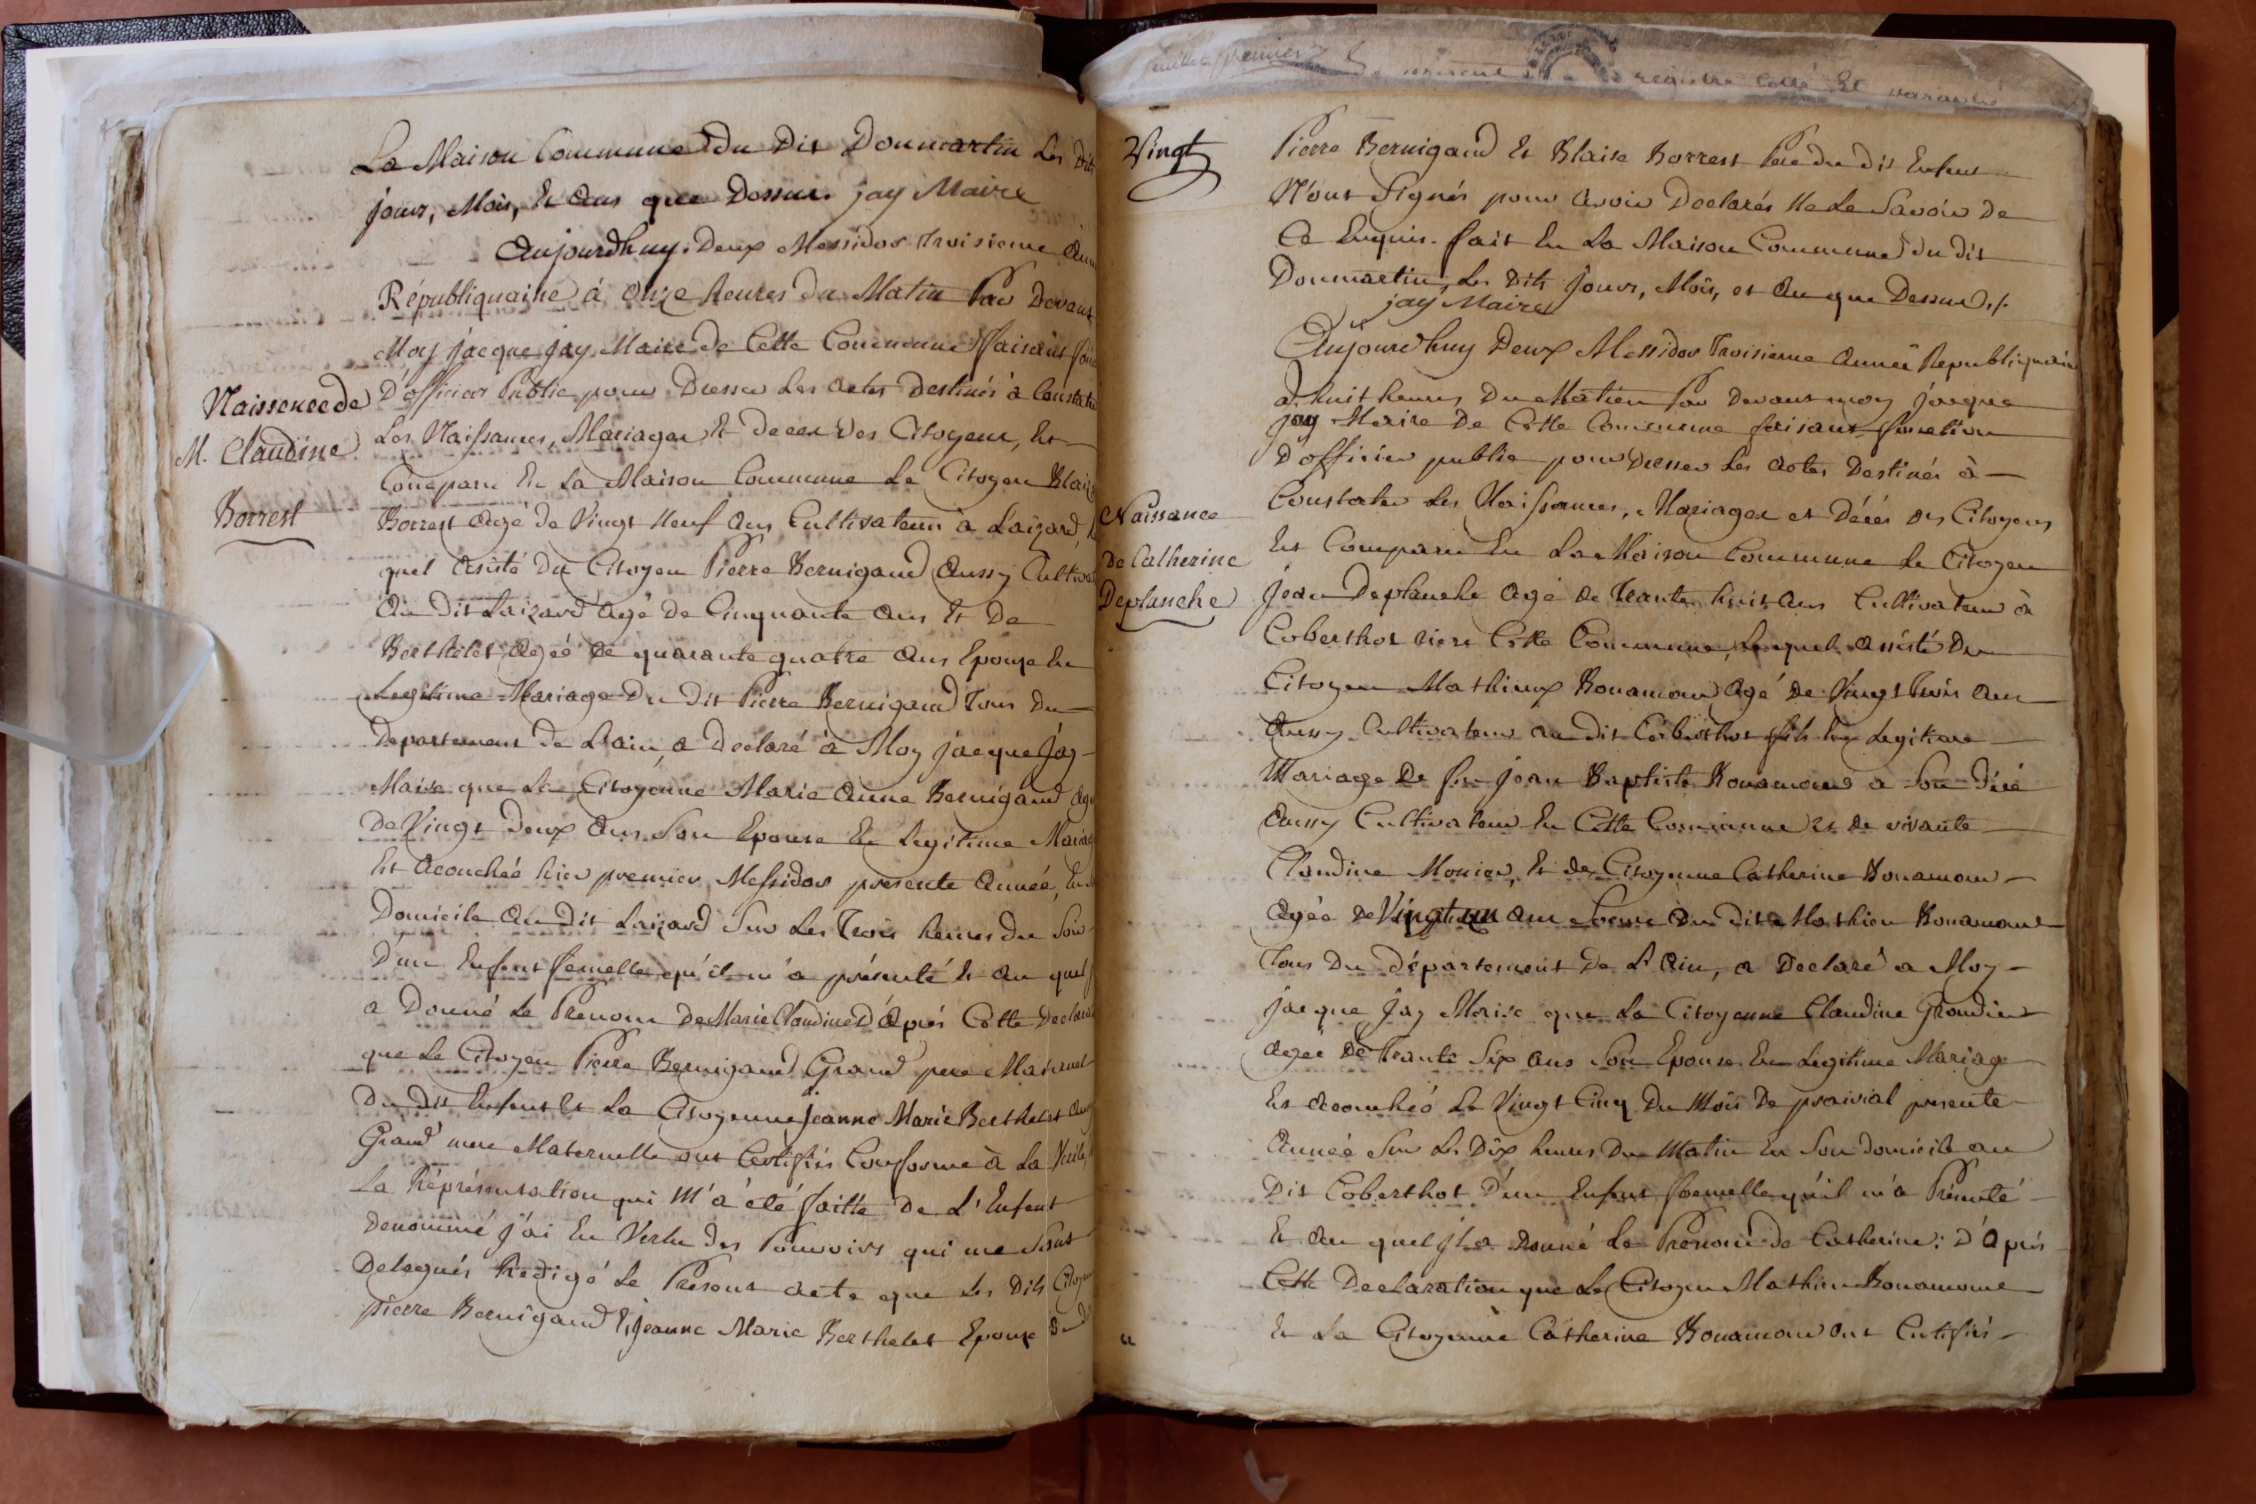 La Maison Commune du Dit Donmartin Les Dits
jour, Mois, Et Ans que Dessus. jay Maire
Aujourdhuy. Deux Messidor Troisieme
Républiquaine à onze heures du Matin Par Devant
Moy jacque jay Maire de Cette Commune faisant
Naissence de
M. Claudine
Borrest
D'officier Public pour Dresser Les actes Destinés à Constater
Les Naissances, Mariages Et deces Des Citoyens, Est
Comparu En La Maison Commune Le Citoyen Blaize
Borrest agé de Vingt Neuf ans Cultivateur à Laizard,
quel asisté du Citoyen Pierre Bernigaud Aussy
Au Dit Laizard agé de Cinquante ans Et De
Berthelet agéé de quarante quatre ans Epouze En
Legitime Mariage Du Dit Pierre Bernigaud Tous Du
departement de Lain, a Declaré à Moy jacque Jay
Maire que La Citoyenne Marie Anne Bernigaud
De Vingt Deux ans Son Epouse En Legitime
Est Acouchéé hier premier Messidor presente Année,
Domicile Au Dit Laizard Sur Les Trois heures du Soir
Dun Enfent femelle qu'il m'a présenté Et Au quel
a Donné Le Prenom De Marie Claudine D'Aprés Cette
que Le Citoyen Pierre Bernigaud Grand pere Maternel
Du Dit Enfent Et La Citoyenne Jeanne Marie Berthelet
Grand mere Maternelle ont Certifiés Conforme à La
La Réprésentation qui M'a été faitte De L'Enfent
denommé j'ai En Vertu des Pouvoirs qui me Sont
Delegués Redigé Le Présent acte que Les Dits
Pierre Bernigaud Et Jeanne Marie Berthelet Epouze
registre Cotté Et
Vingt
Pierre Bernigaud Et Blaise Borrest Pere du dit Enfent
N'ont Signés pour avoir Declarés Ne Le Savoir De
Ce Enquis. fait En La Maison Commune du dit
Donmartin, Les Dits jours, Mois, et An que Dessus ./.
jay Maire
Aujourdhuy Deux Messidor Troisieme Année
à huit heures Du Matien Par Devant moy jacque
jay Maire De Cette Commune faisant fonction
D'officier public pour Dresser Les actes Destinés à
Naissance
De Catherine
Deplanche
Constater Les Naissances, Mariages et Décés Des Citoyens,
Est Comparu En La Maison Commune Le Citoyen
Jean Deplanche agé de Trante huit ans Cultivateur à
Coberthot riere Cette Commune, Lequel assisté Du
Citoyen Mathieux Bonamour agé de Vingt Trois ans
Aussy Cultivateur au dit Coberthot fils En Legitime
Mariage De feu Jean Baptiste Bonamour a Son
Aussy Cultivateur En Cette Commune Et de vivante
Claudine Monier, Et de Citoyenne Catherine Bonamour
agéé de Vingt un ans Soeur du dit Mathieu Bonamour
Tous Du Département De L'Ain, a Declaré a Moy
jacque Jay Maire que La Citoyenne Claudine
agéé de Trante Six ans Son Epouse En Legitime Mariage
Est acouchéé Le Vingt Cinq Du Mois De prairial presente
Année Sur Les Dix heures Du Matin En Son domicile au
Dit Coberthot d'un Enfent foemelle qu'il m'a Présenté
Et Au quel jl a donné Le Prenom de Catherine: D'Aprés
Cette Declaration que Le Citoyen Mathieu Bonamour
Et La Citoyenne Catherine Bonamour ont Certifiés